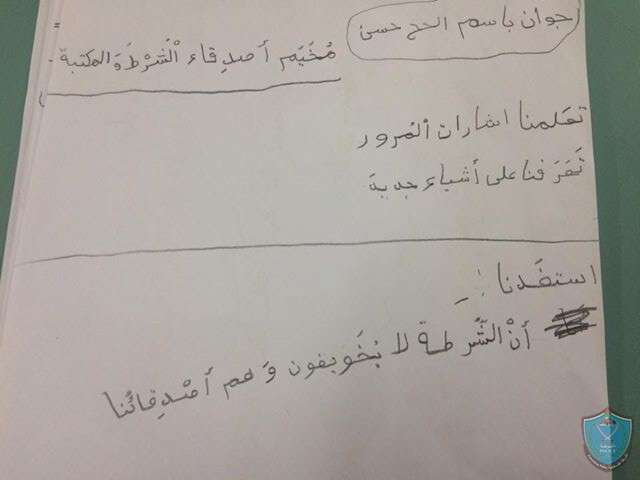 جوان باسم الحج حسن
مُخَيَم أصدِقاء الْشُرْطَ وَالمكتبة
تعَلمنا اشاران المرور
تَعَرَفنا على أشياء جديةَ
استفَدنا :
أنْ الشُرطة لا يُخَوِيفون وَهم أصْدِقائُنا